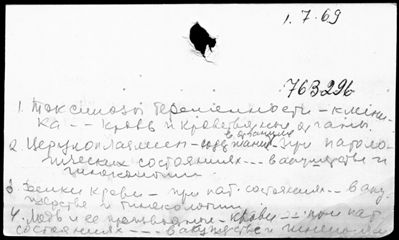 1.7.69
763296
1. Токсикозы беременности – клини-
ка -- кровь и кроветворные органы.
в организме
2. Церулоплазмин – содержание – при патоло-
гических состояниях --- в акушерстве и
гинекологии
3. Белки крови – при пат. состояниях -- в аку-
шерстве и гинекологии
4. Медь и ее производные – крови -- при пат.
состояниях --- в акушерстве и гинекологии